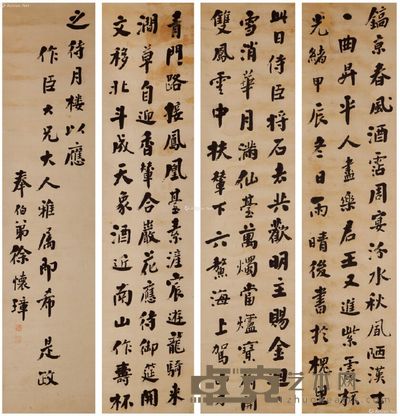 青門路接鳳凰臺素滻宸遊龍騎來
澗草自迎香輦合巖花應待御筵開
文移北斗成天象酒近南山作壽杯
此日侍臣将石去共歡明主賜金
雪消華月滿仙臺萬燭當爐寶
雙鳳雲中扶輦下六鰲海上駕
鎬京春風酒霑周宴汾水秋風陋漢才
一曲昇平人盡樂君王又進紫霞杯
光緒甲辰冬日雨晴後書於槐書
之待月樓以應
作臣大兄大人雅属即希 是政
奉伯弟徐懷璋